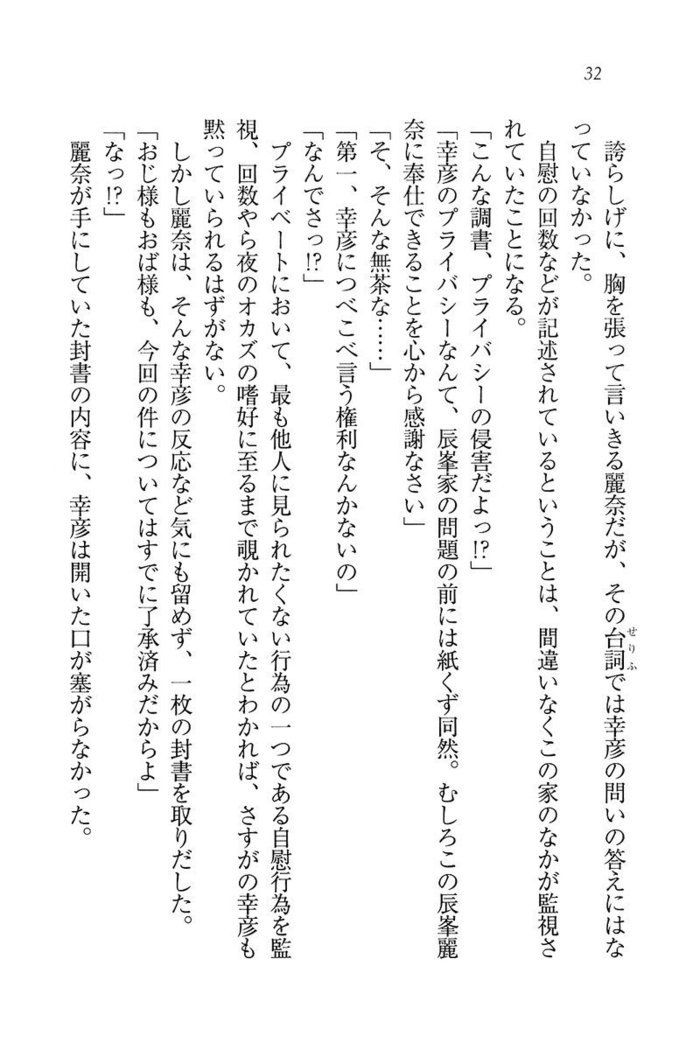 32
誇らしげに、胸を張って言いきる麗奈だが、その台詞では幸彦の問いの答えにはな
せりふ
っていなかった。
自慰の回数などが記述されているということは、間違いなくこの家のなかが監視さ
れていたことになる。
「こんな調書、プライバシーの侵害だよっ!?」
「幸彦のプライバシーなんて、辰峯家の問題の前には紙くず同然。むしろこの辰峯麗
奈に奉仕できることを心から感謝なさい」
「そ、そんな無茶な……」
「第一、幸彦につべこべ言う権利なんかないの」
「なんでさっ!?」
プライベートにおいて、最も他人に見られたくない行為の一つである自慰行為を監
視、回数やら夜のオカズの嗜好に至るまで覗かれていたとわかれば、さすがの幸彦も
黙っていられるはずがない。
しかし麗奈は、そんな幸彦の反応など気にも留めず、一枚の封書を取りだした。
「おじ様もおば様も、今回の件についてはすでに了承済みだからよ」
「なっ!?」
麗奈が手にしていた封書の内容に、幸彦は開いた口が塞がらなかった。